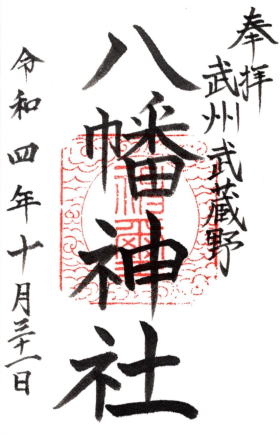 奉拝
武州武蔵野
八幡神社
令和四年十月三十一日